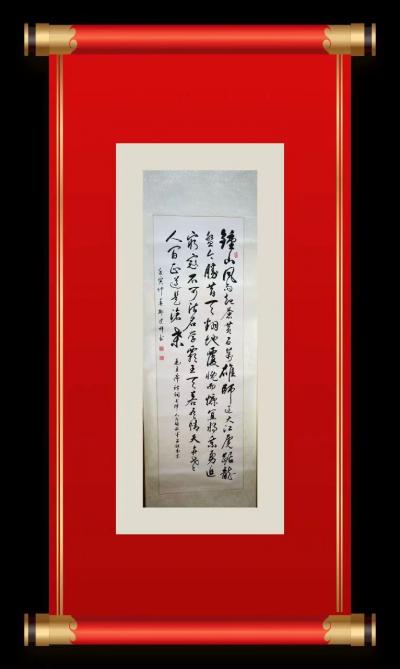 鍾山風雨起蒼黄百万雄師过大江虎踞龍
盤今勝昔天翻地覆慨而慷宜将剩勇追
窮寇不可沽名学霸王天若有情天亦老
人间正道是滄桑 毛主席诗词七律人民解放军占领南京
庚寅仲春 书